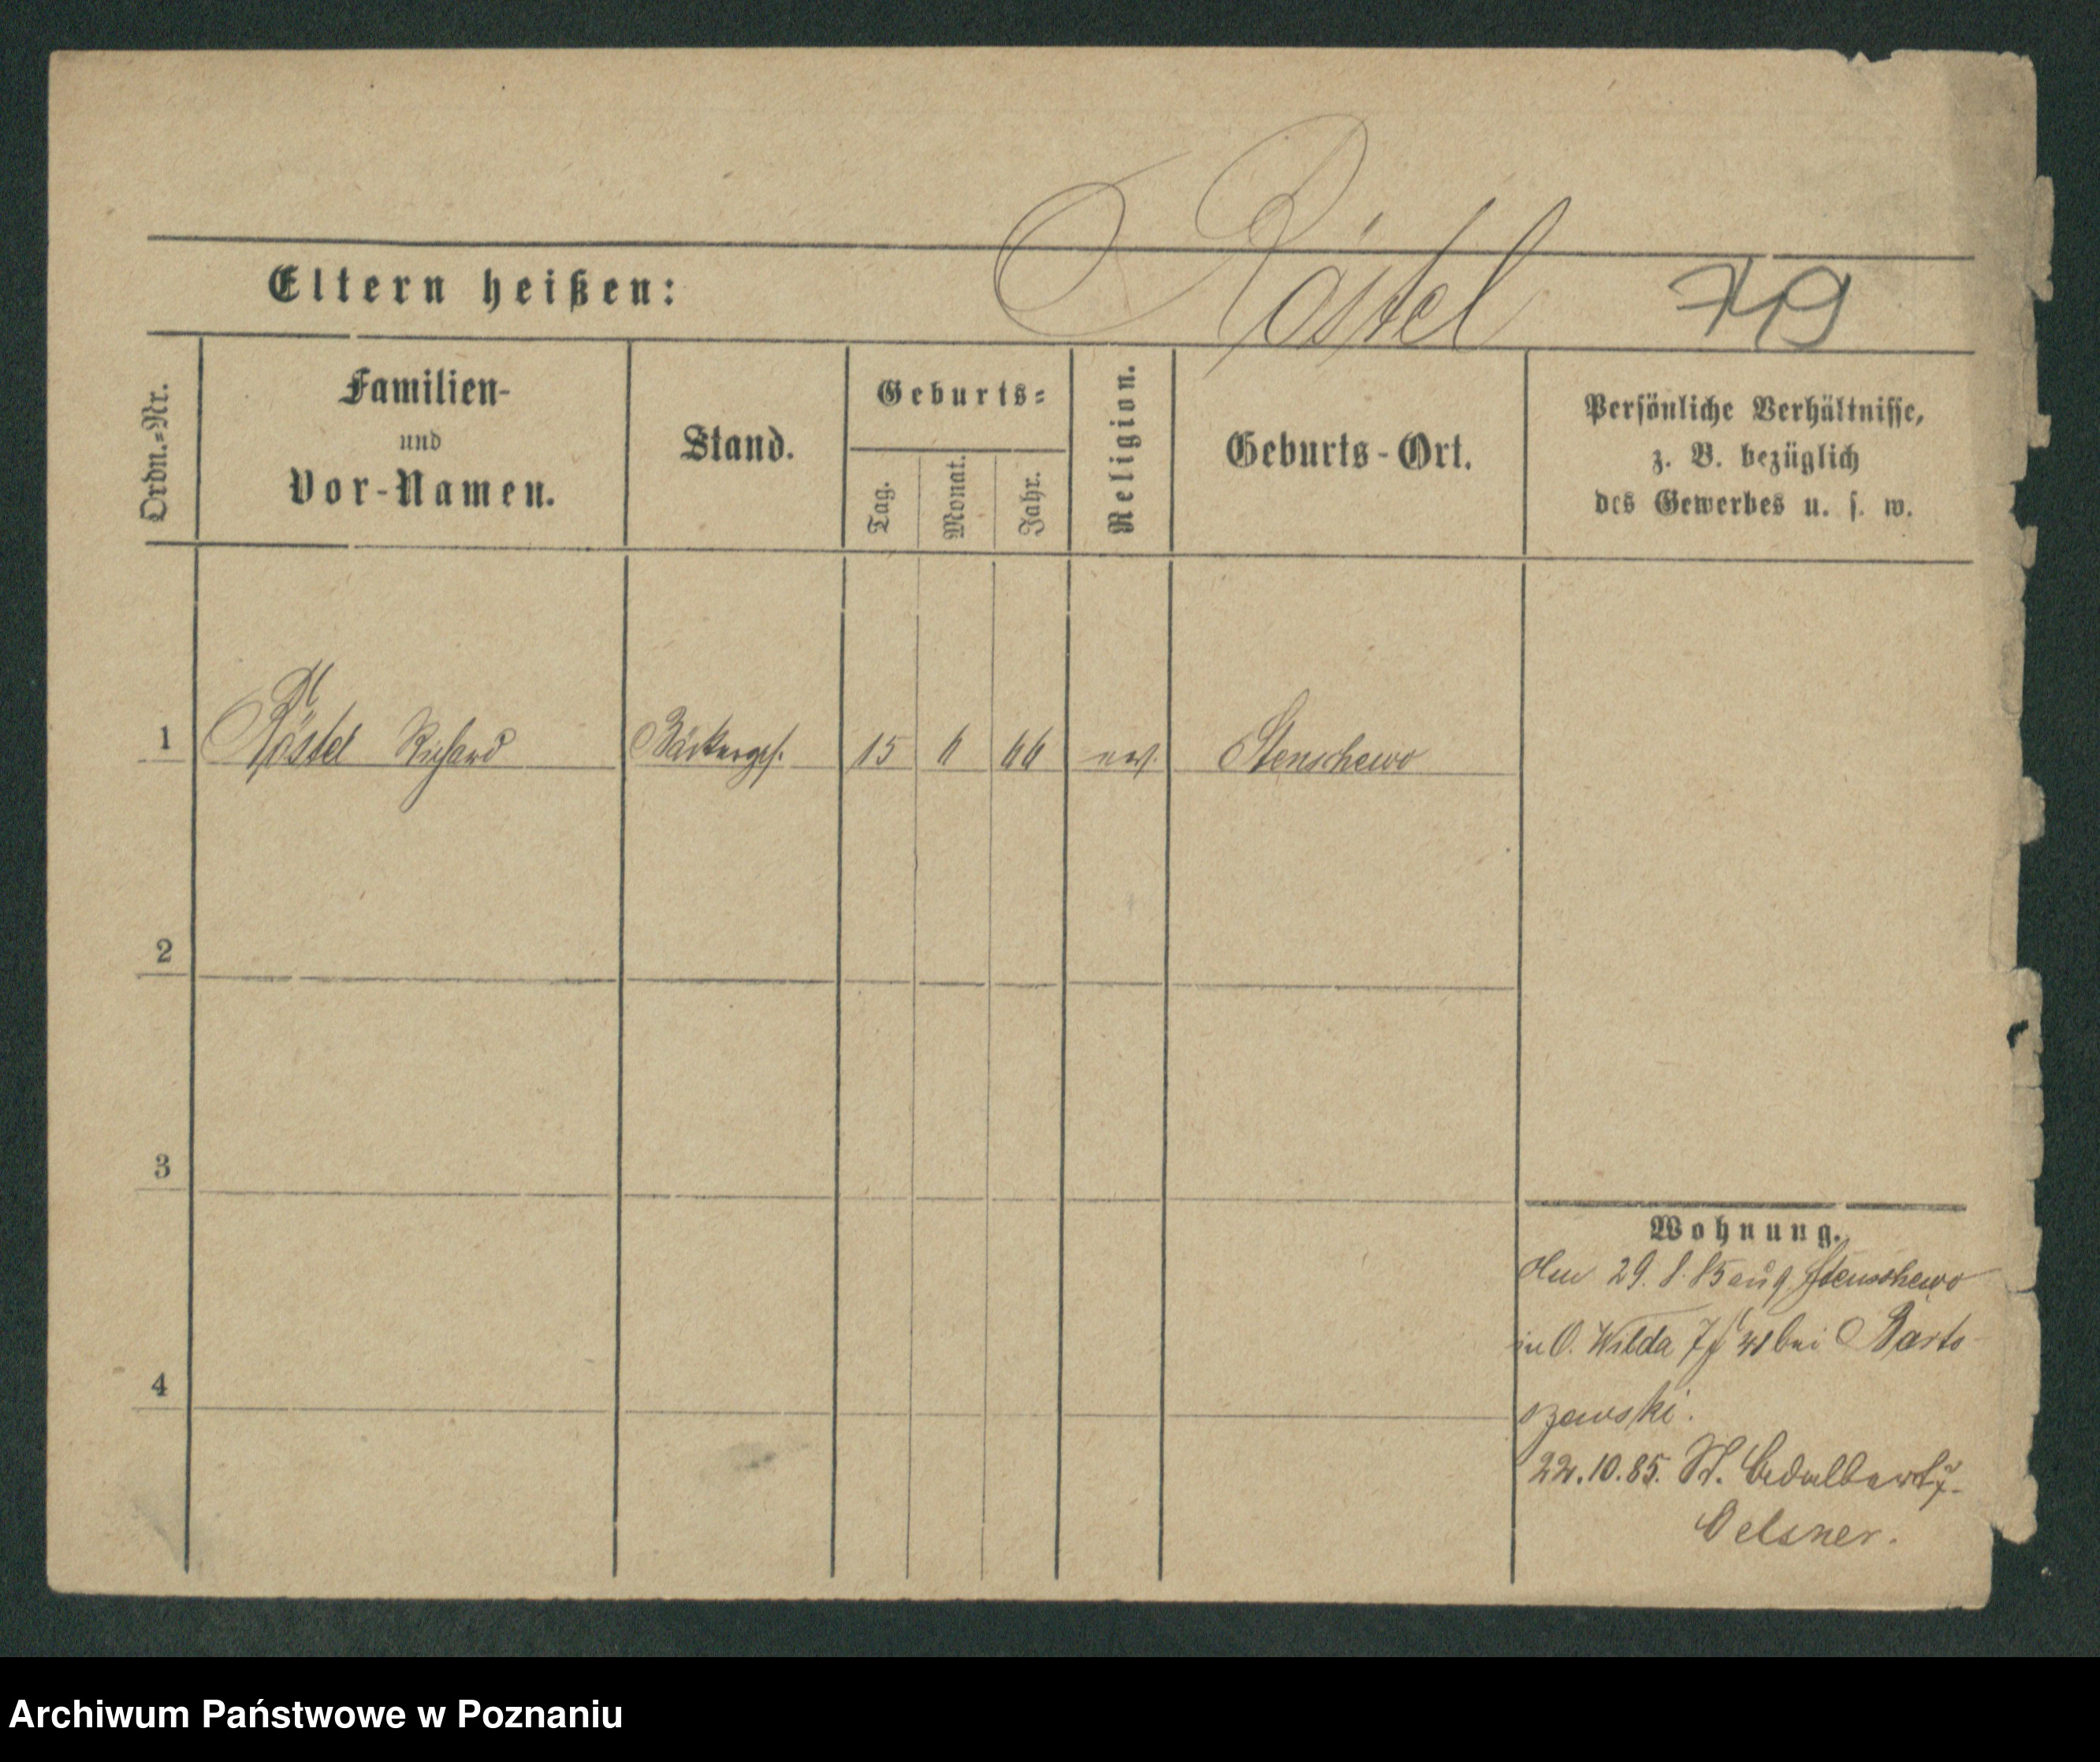 Röstel 79
Eltern heißen:
Ordn.-Nr.
Familien-
und
Vor-Namen.
Stand.
Geburts-
Tag.
Monat.
Jahr.
Religion.
Geburts-Ort.
Persönliche Verhältnisse,
z. B. bezüglich
des Gewerbes u. s. w.
1 Röstel Richard Bäckerges. 15 6 66 ev. Stenschewo
2
3
4
Wohnung.
29. 8. 85 aus Stenschewo
in O. Wilda bei Barto
szewski.
22. 10. 85. St.
Oelsner.
Archiwum Państwowe w Poznaniu